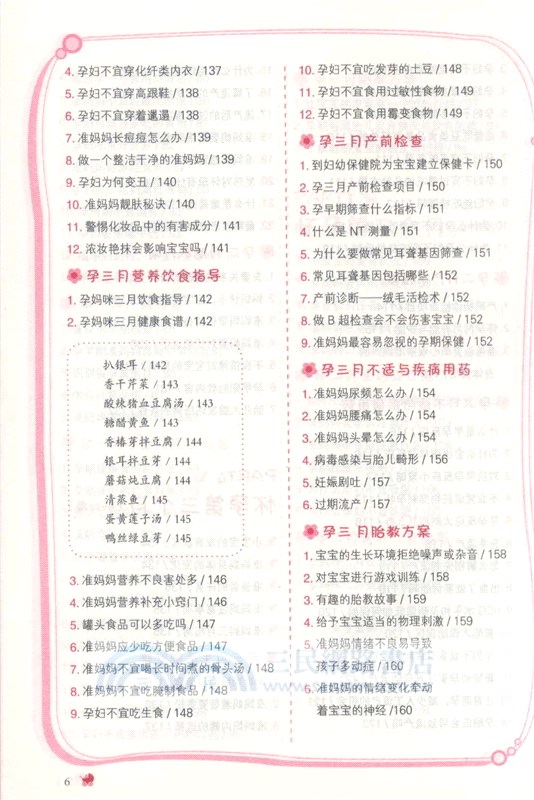 4. 孕妇不宜穿化纤类内衣 / 137
5. 孕妇不宜穿高跟鞋 / 138
6. 孕妇不宜穿着邋遢 / 138
7. 准妈妈长痘痘怎么办 / 139
8. 做一个整洁干净的准妈妈 / 139
9. 孕妇为何变丑 / 140
10. 准妈妈靓肤秘诀 / 140
11. 警惕化妆品中的有害成分 / 141
12. 浓妆艳抹会影响宝宝吗 / 141
孕三月营养饮食指导
1. 孕妈咪三月饮食指导 / 142
2. 孕妈咪三月健康食谱 / 142
扒银耳 / 142
香干芹菜 / 143
酸辣猪血豆腐汤 / 143
糖醋黄鱼 / 143
香椿芽拌豆腐 / 144
银耳拌豆芽 / 144
蘑菇炖豆腐 / 144
清蒸鱼 / 145
蛋黄莲子汤 / 145
鸭丝绿豆芽 / 145
3. 准妈妈营养不良害处多 / 146
4. 准妈妈营养补充小窍门 / 146
5. 罐头食品可以多吃吗 / 147
6. 准妈妈应少吃方便食品 / 147
7. 准妈妈不宜喝长时间煮的骨头汤 / 148
8. 准妈妈不宜吃腌制食品 / 148
9. 孕妇不宜吃生食 / 148
10. 孕妇不宜吃发芽的土豆 / 148
11. 孕妇不宜食用过敏性食物 / 149
12. 孕妇不宜食用霉变食物 / 149
孕三月产前检查
1. 到妇幼保健院为宝宝建立保健卡 / 150
2. 孕三月产前检查项目 / 150
3. 孕早期筛查什么指标 / 151
4. 什么是 NT 测量 / 151
5. 为什么要做常见耳聋基因筛查 / 151
6. 常见耳聋基因包括哪些 / 152
7. 产前诊断——绒毛活检术 / 152
8. 做 B 超检查会不会伤害宝宝 / 152
9. 准妈妈最容易忽视的孕期保健 / 152
孕三月不适与疾病用药
1. 准妈妈尿频怎么办 / 154
2. 准妈妈腰痛怎么办 / 154
3. 准妈妈头晕怎么办 / 154
4. 病毒感染与胎儿畸形 / 156
5. 妊娠剧吐 / 157
6. 过期流产 / 157
孕三月胎教方案
1. 宝宝的生长环境拒绝噪声或杂音 / 158
2. 对宝宝进行游戏训练 / 158
3. 有趣的胎教故事 / 159
4. 给予宝宝适当的物理刺激 / 159
5. 准妈妈情绪不良易导致
孩子多动症 / 160
6. 准妈妈的情绪变化牵动
着宝宝的神经 /160
三民網路書店
6